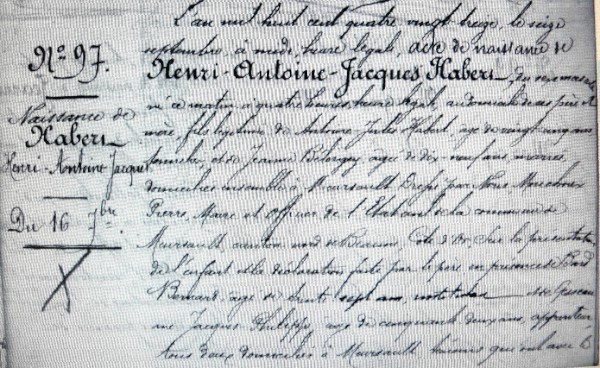 L'an mil huit cent quatre vingt treize, le seize
septembre, à midi, heure légale, acte de naissance de
Henri-Antoine-Jacques Habert, du sexe masculin
né ce matin à quatre heures, heure légale, au domicile de ses père et
mère, fils légitime de Antoine Jules Habert, âgé de vingt cinq ans,
tonnelier, et de Jeanne âgée de dix-neuf ans, mariés,
domiciliés ensemble à Meursault. Dressé par Nous
Pierre, Maire et Officier de l'Etat civil de la commune de
Meursault, canton nord de Beaune, Côte d'Or, Sur la présentation
de l'enfant et la déclaration faite par le père en présence de
Bernard, âgé de trente sept ans, instituteur et de
Jacques Philippe, âgé de cinquante deux ans, appariteur,
tous deux domiciliés à Meursault, témoins qui ont avec le
N° 97.
Naissance de
Habert
Henri-Antoine Jacques
Du 16 7bre